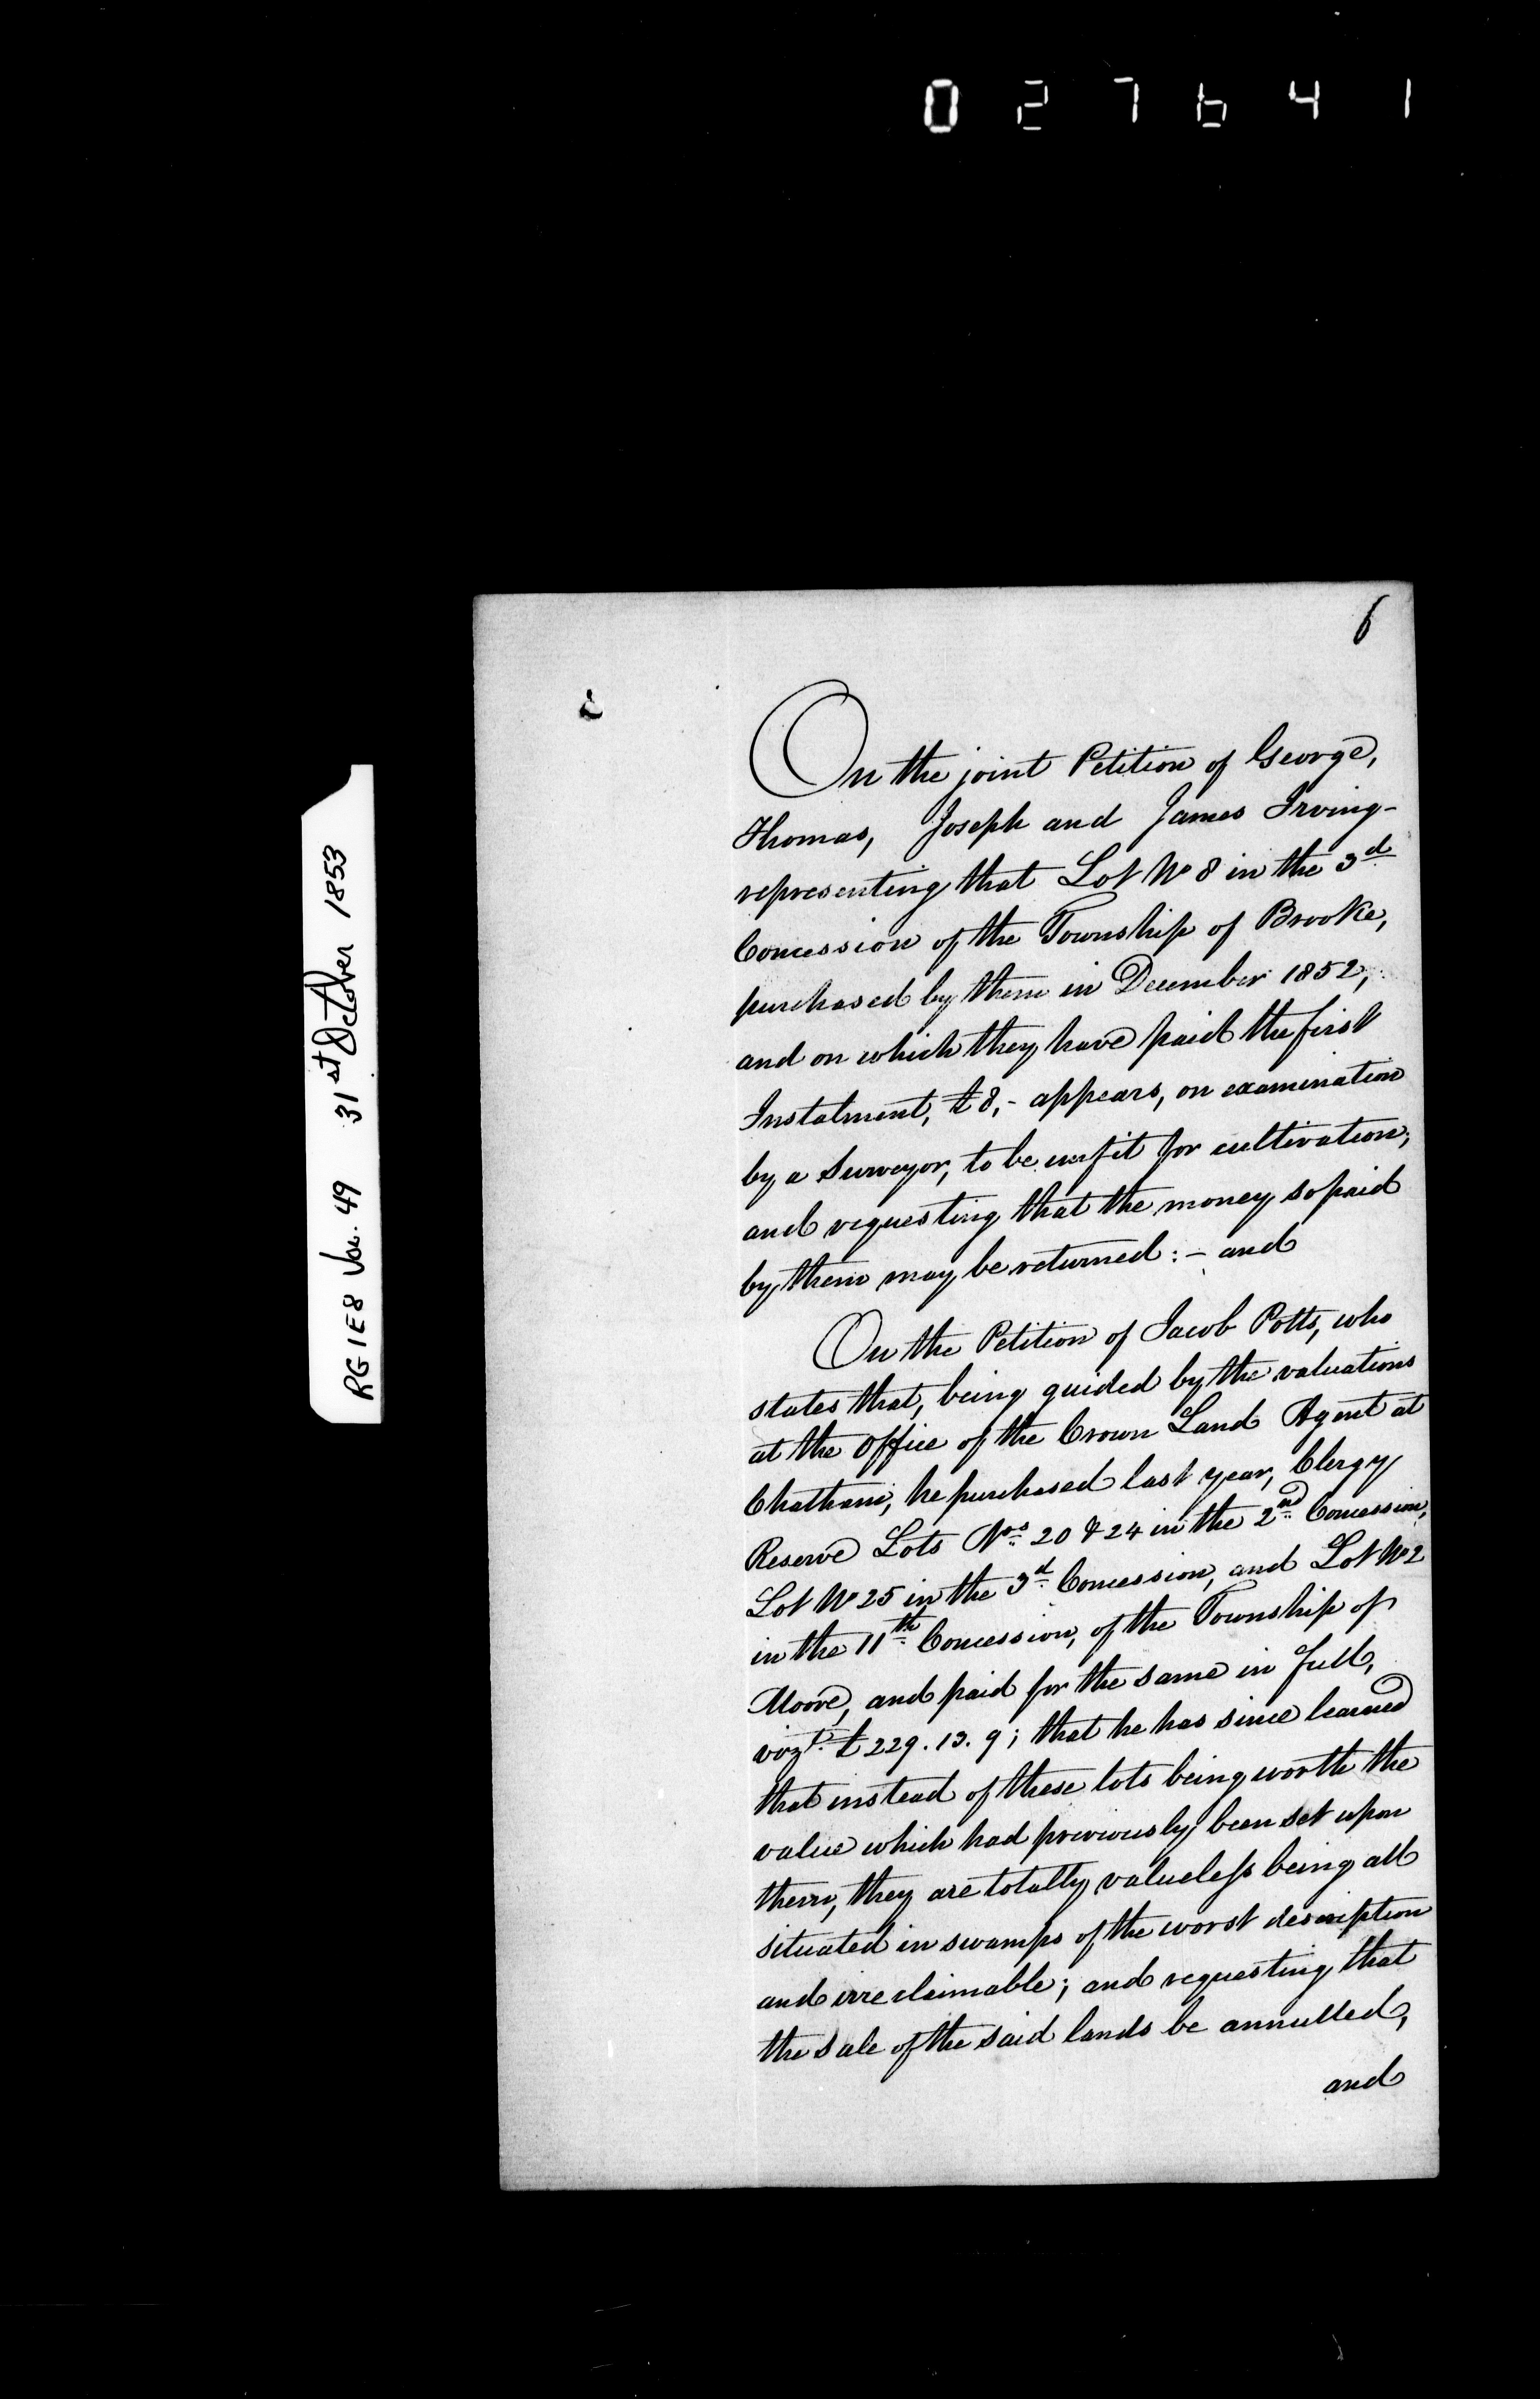 027641
RG 1 E8 Vol. 49 31st October 1853
6
On the joint Petition of George,
Thomas, Joseph and James Irving -
representing that Lot No 8 in the 3d
Concession of the Township of Brooke,
purchased by them in December 1852,
and on which they have paid the first
Instalment, £8,- appears, on examination
by a Surveyor, to be unfit for cultivation;
and requesting that the money so paid
by them may be returned: - and
On the Petition of Jacob Potts, who
states that, being guided by the valuations
at the Office of the Crown Land Agent at
Chatham, he purchased last year, Clergy
Reserve Lots Nos 20 & 24 in the 2nd Concession,
Lot No 25 in the 3d Concession, and Lot No 2
in the 11th Concession, of the Township of
Moore, and paid for the same in full,
vizt £229.13.9; that he has since learned
that instead of these lots being worth the
value which had previously been set upon
them, they are totally valueless being all
situated in swamps of the worst description
and irreclaimable; and requesting that
the sale of the said lands be annulled,
and